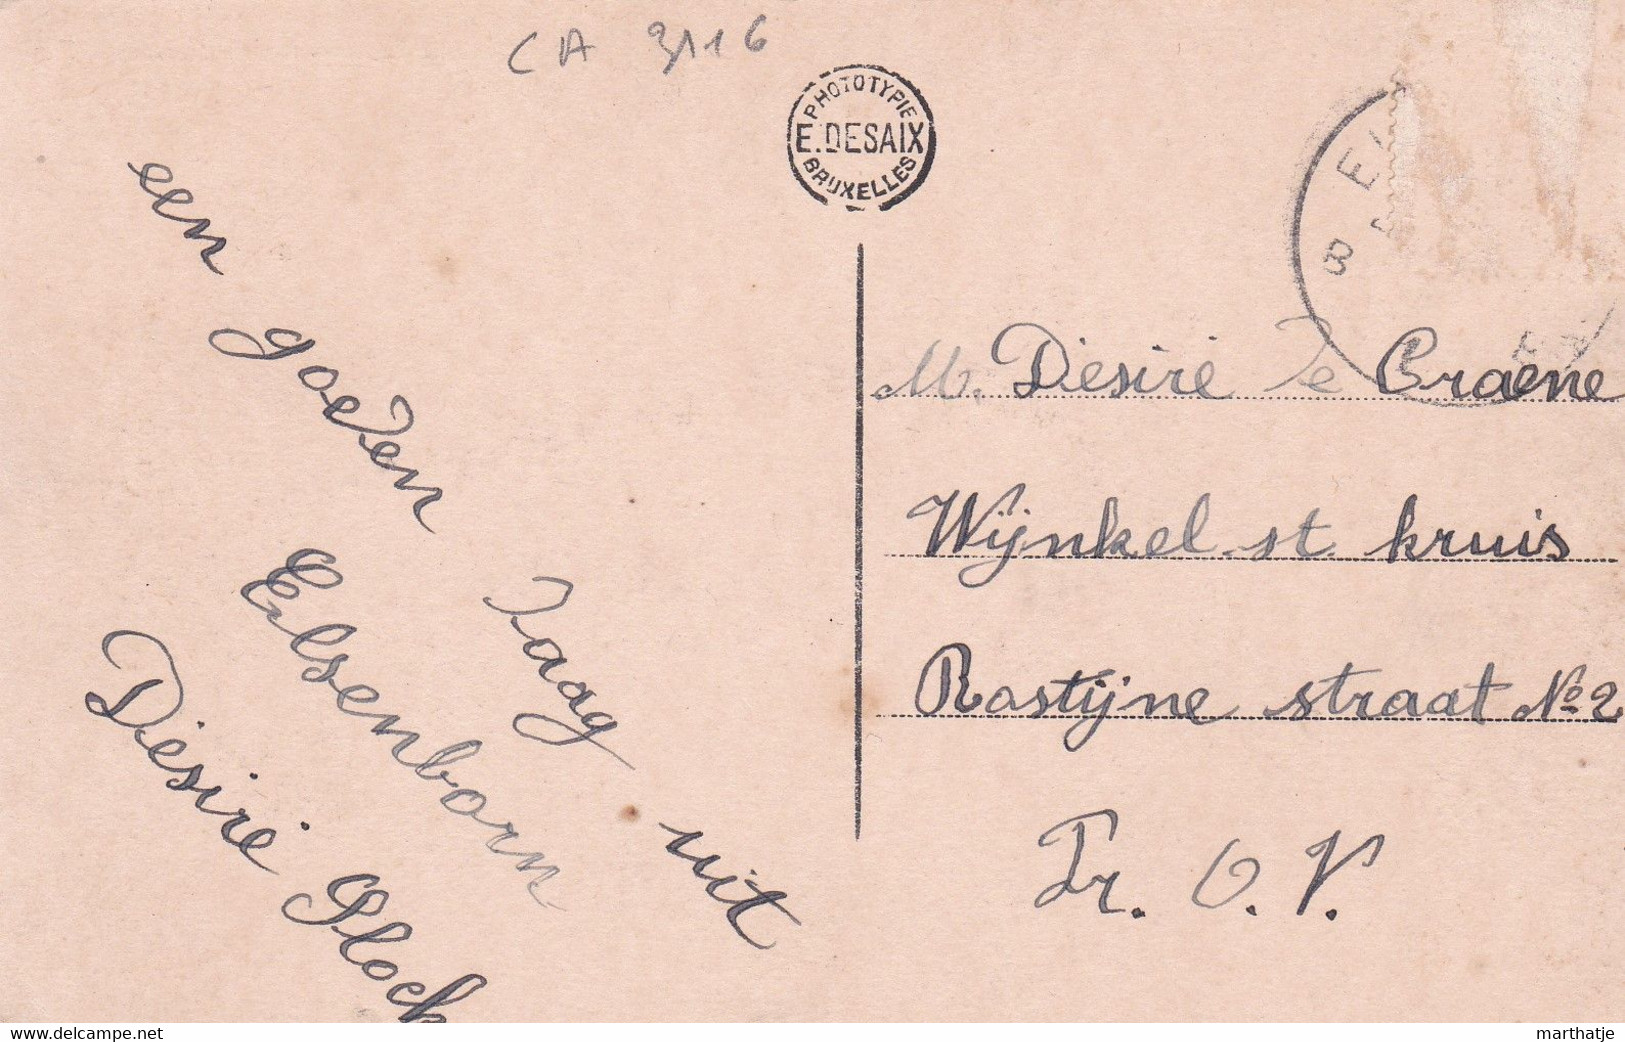 CA 3116
PHOTOTYPIE
E. DESAIX
BRUXELLES
B
een goeden daag uit
Elsenborn
Désiré Plock
M. Désiré De Craene
Wijnkel st kruis
Rostijne straat No 2
Fr. O. V.
www.delcampe.net
marthatje